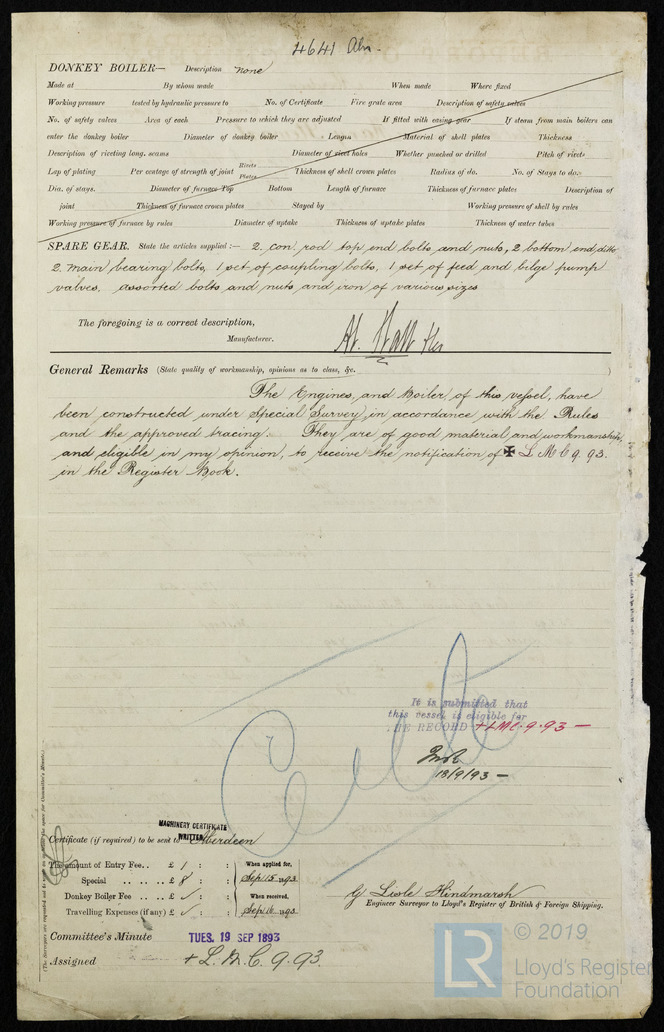 4641 Abn.
DONKEY BOILER— Description none
Made at By whom made When made Where fixed
Working pressure tested by hydraulic pressure to No. of Certificate Fire grate area Description of safety valves
No. of safety valves Area of each Pressure to which they are adjusted If fitted with easing gear If steam from main boilers can
enter the donkey boiler Diameter of donkey boiler Length Material of shell plates Thickness
Description of riveting long. seams Diameter of rivet holes Whether punched or drilled Pitch of rivets
Lap of plating Per centage of strength of joint Rivets Plates Thickness of shell crown plates Radius of do. No. of Stays to do.
Dia. of stays. Diameter of furnace Top Bottom Length of furnace Thickness of furnace plates Description of
joint Thickness of furnace crown plates Stayed by Working pressure of shell by rules
Working pressure of furnace by rules Diameter of uptake Thickness of uptake plates Thickness of water tubes
SPARE GEAR. State the articles supplied:— 2 con rod top end bolts and nuts, 2 bottom end ditto
2 main bearing bolts, 1 set of coupling bolts, 1 set of feed and bilge pump
valves, assorted bolts and nuts and iron of various sizes
The foregoing is a correct description,
Manufacturer.
General Remarks (State quality of workmanship, opinions as to class, &c.
The Engines, and Boiler, of this vessel, have
been constructed under Special Survey, in accordance with the Rules
and the approved tracing. They are of good material and workmanship,
and eligible in my opinion, to receive the notification of ✠ L M C 9.93.
in the Register Book.
It is submitted that
this vessel is eligible for
THE RECORD +LMC 9.93 —
18/9/93 —
MACHINERY CERTIFICATE
WRITTEN
Certificate (if required) to be sent to Aberdeen
The amount of Entry Fee.. £ 1 : : When applied for,
Special .. .. .. £ 8 : : Sep 15 1893
Donkey Boiler Fee £ : : When received,
Travelling Expenses (if any) £ : : Sep 16 1893
G Lisle Hindmarsh
Engineer Surveyor to Lloyd's Register of British & Foreign Shipping.
Committee's Minute TUES. 19 SEP 1893
Assigned + L.M.C. 9.93.
(The Surveyors are requested not to write on or below the space for Committee's Minute.)
LR
© 2019
Lloyd's Register
Foundation